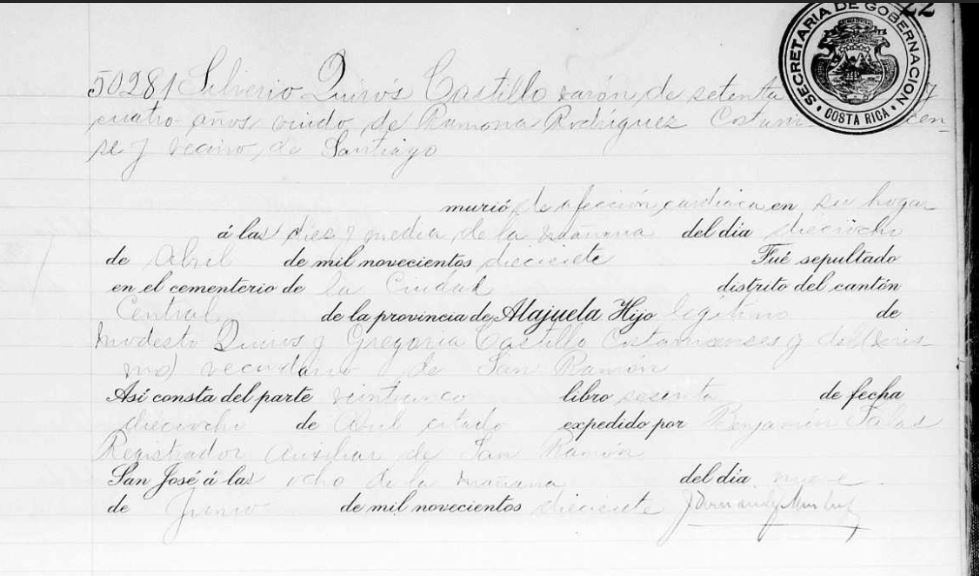 22
SECRETARIA DE GOBERNACION
COSTA RICA
50281 Silverio Quirós Castillo varón, de setenta y
cuatro años viudo, de Ramona Rodríguez Costarricen-
se y vecino, de Santiago
murió de afección cardiaca en su hogar
á las dies y media de la mañana del dia dieciocho
de Abril de mil novecientos diecisiete Fué sepultado
en el cementerio de la Ciudad distrito del cantón
Central de la provincia de Alajuela Hijo legítimo de
Modesto Quiros y Gregoria Castillo Costarricenses y del
mo vecindario de San Ramón
Así consta del parte veinticinco libro sesenta de fecha
dieciocho de Abril citado expedido por Benjamín Salas
Registrador Auxiliar de San Ramón
San José á las ocho de la mañana del dia nueve
de Junio de mil novecientos diecisiete